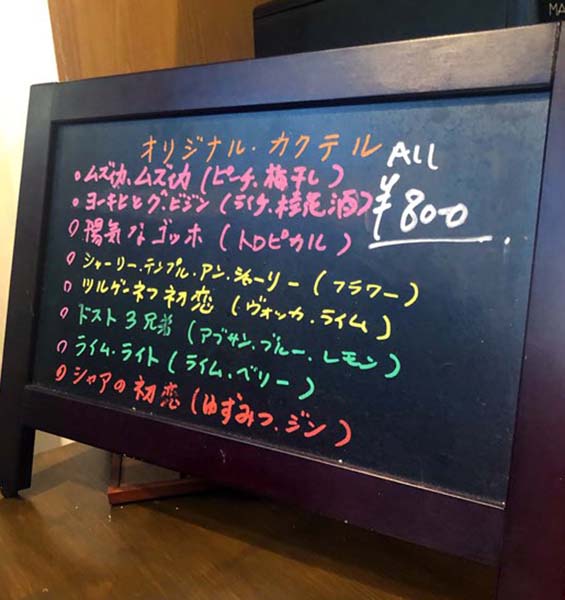 オリジナル・カクテル ALL
¥800
ムズ痒、ムズ痒(ピーチ、梅干し)
ヨーキヒとグ・ビジン(ライチ、桂花酒)
陽気なゴッホ(トロピカル)
シャーリー・テンプル・アン・シャーリー(フラワー)
ツルゲーネフ初恋(ヴォッカ・ライム)
ドスト3兄弟(アブサン、ブルー、レモン)
ライム・ライト(ライム、ベリー)
シャアの初恋(ゆずみつ、ジン)
MA